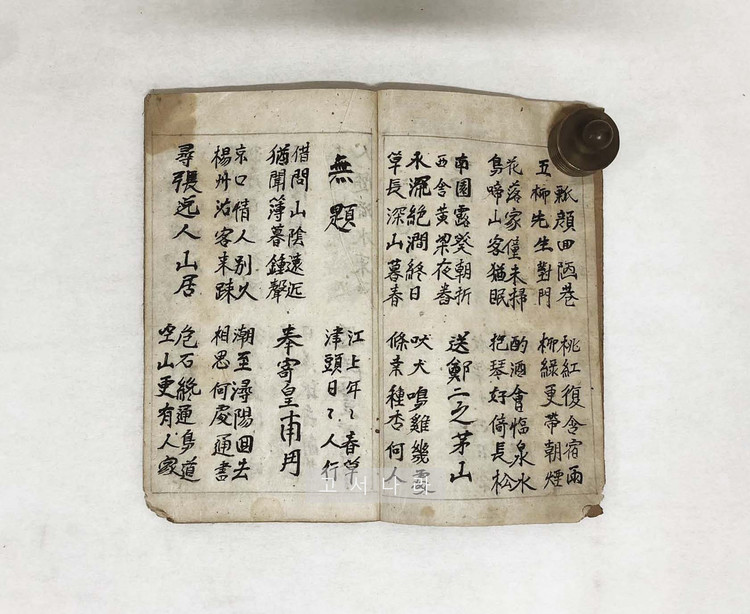 瓢顔回陋巷
五柳先生對門
桃紅復含宿雨
柳綠更帶朝煙
花落家僮未掃
鳥啼山客猶眠
酌酒會臨泉水
抱琴好倚長松
南園露葵朝折
西舍黃粱夜舂
送鄭二之茅山
水流絕澗終日
草長深山暮春
吠犬鳴雞幾處
條桑種杏何人
無題
江上年〻春草
津頭日〻人行
借問山陰遠近
猶聞薄暮鍾聲
奉寄皇甫冉
京口情人別久
楊州沽客来疎
潮至潯陽回去
相思何處通書
尋張逸人山居
危石終通鳥道
空山更有人家
고서나라